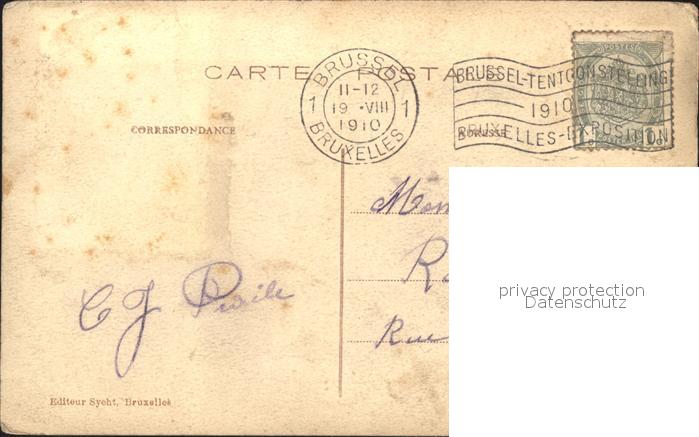 CARTE POSTA
BRUSSEL
11-12
1 19 -VIII 1
1910
BRUXELLES
BRUSSEL-TENTOONSTELLING
1910
BRUXELLES-EXPOSITION
POSTES
1c 1c
CORRESPONDANCE
ADRESSE
Mon
Ra
Rue
C J
privacy protection
Datenschutz
Editeur Sycht, Bruxelles